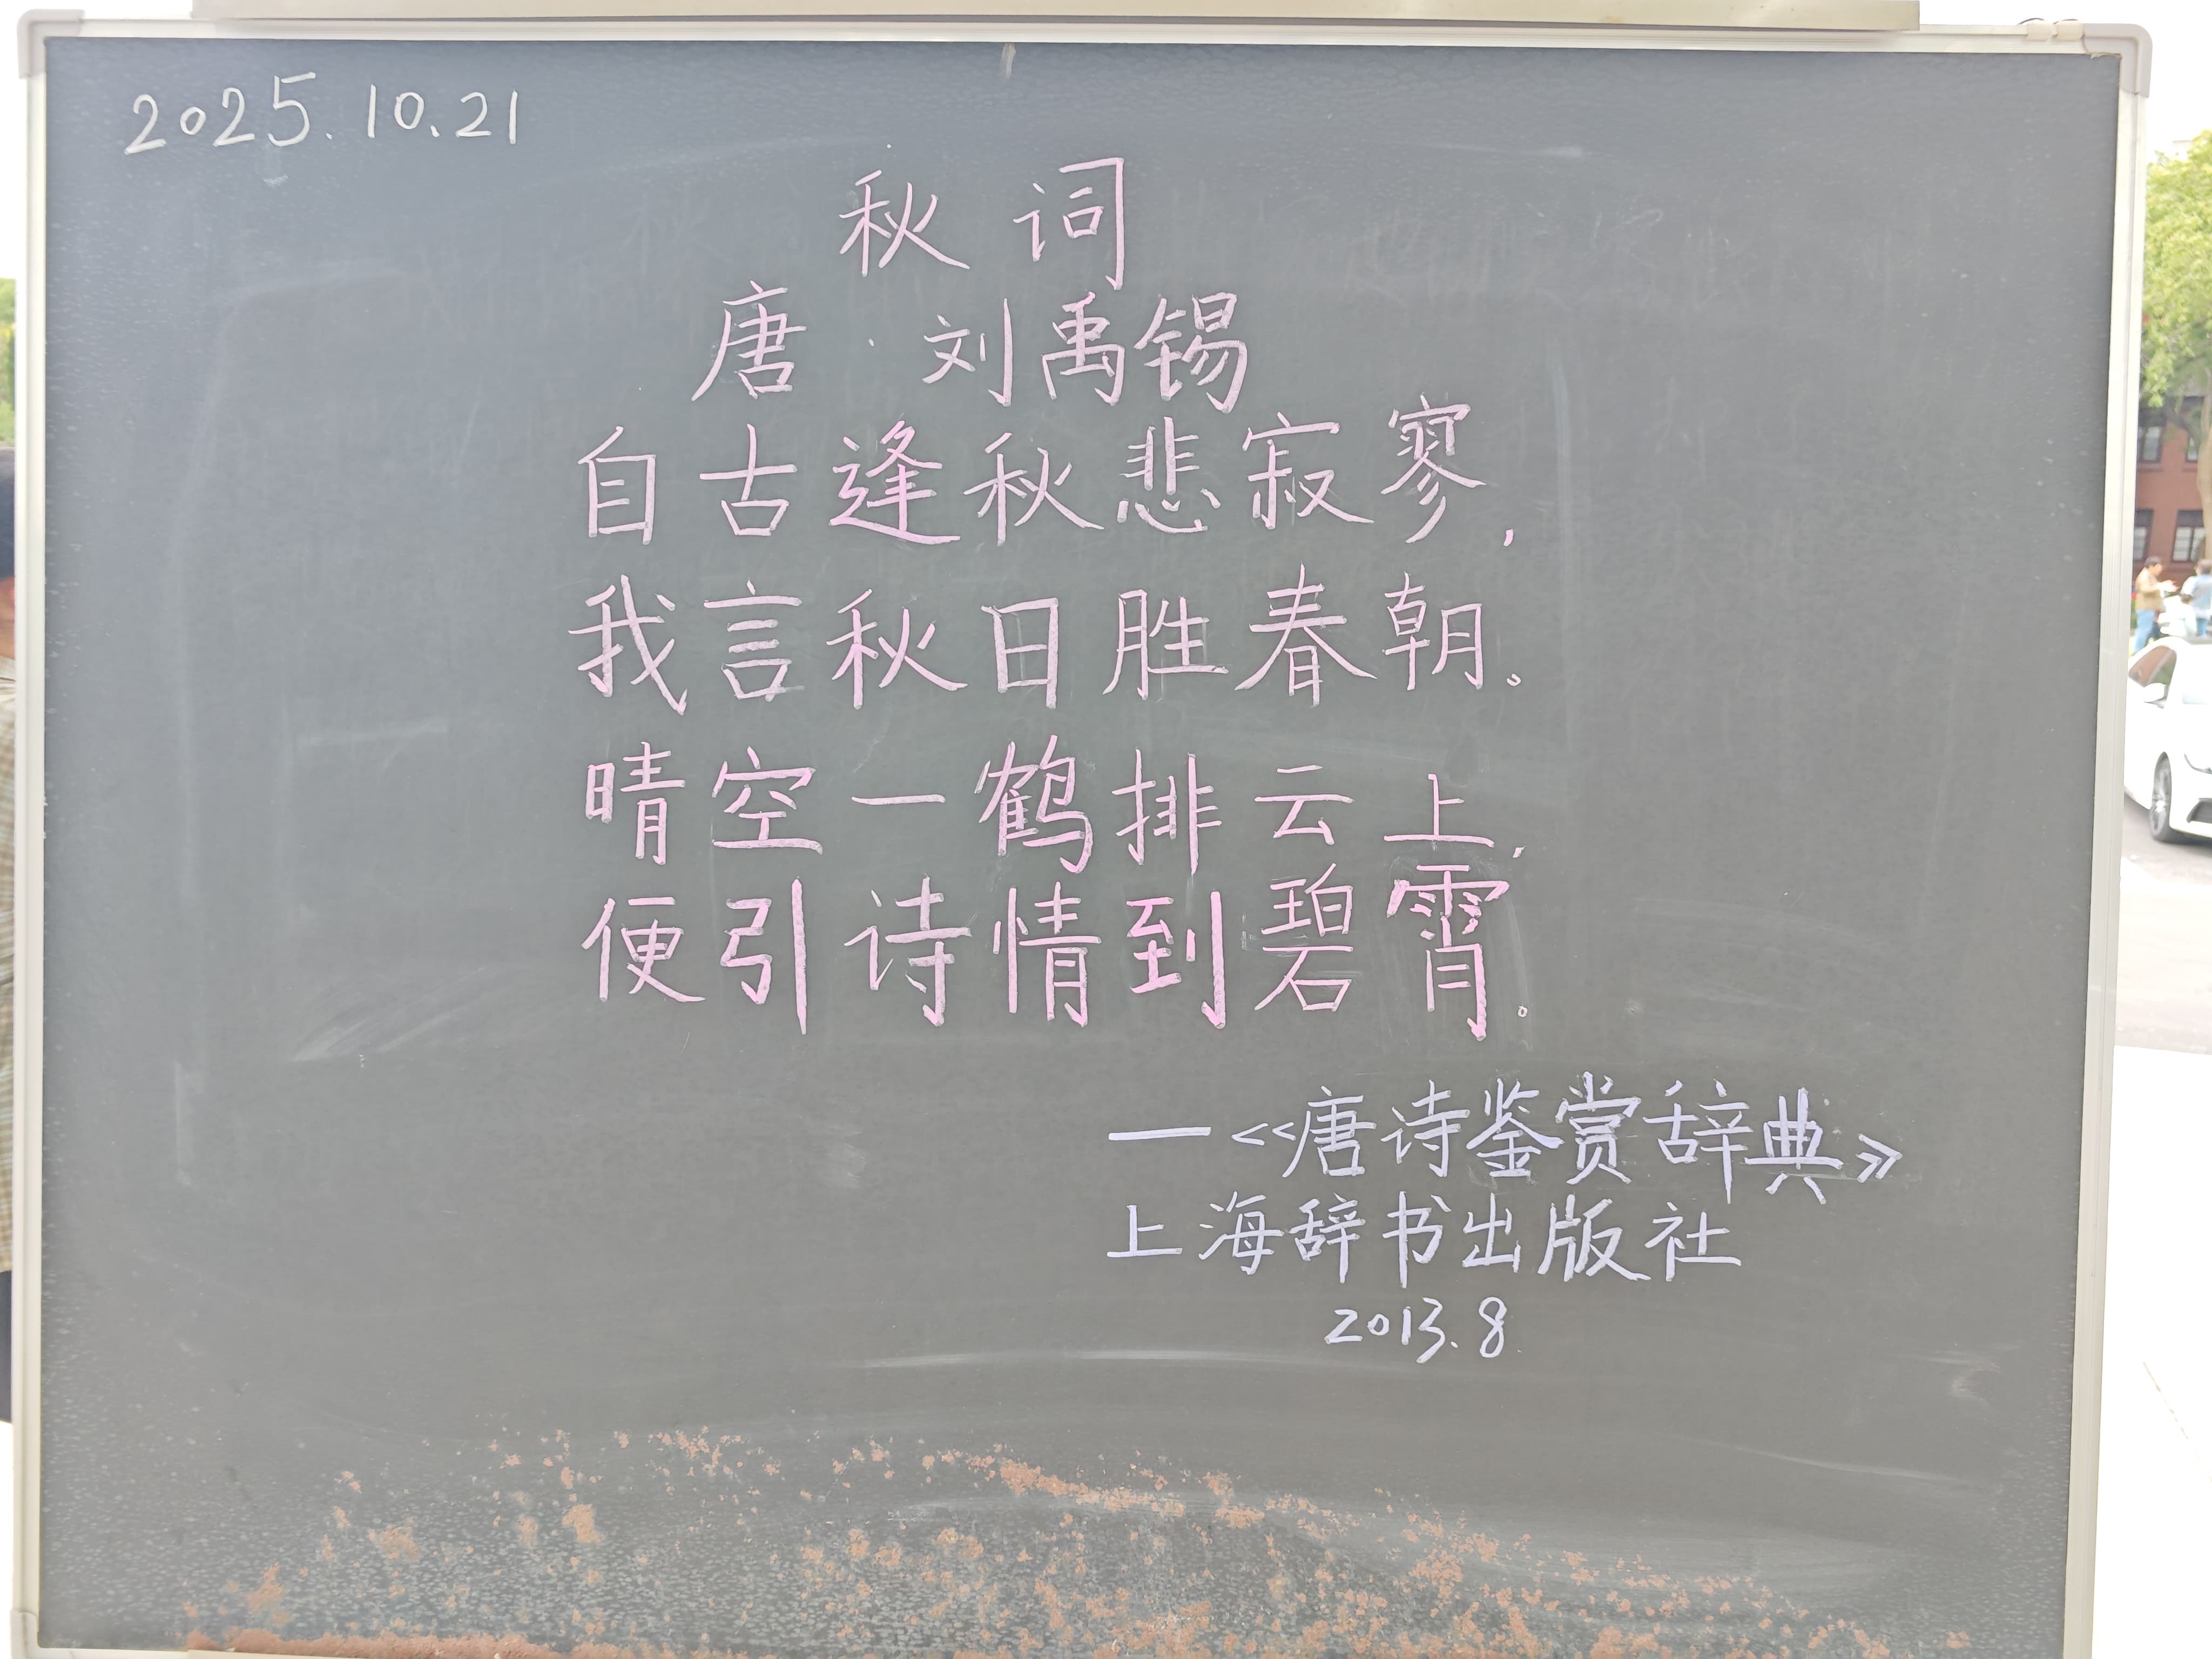 2025.10.21
秋词
唐·刘禹锡
自古逢秋悲寂寥,
我言秋日胜春朝。
晴空一鹤排云上,
便引诗情到碧霄。
—《唐诗鉴赏辞典》
上海辞书出版社
2013.8